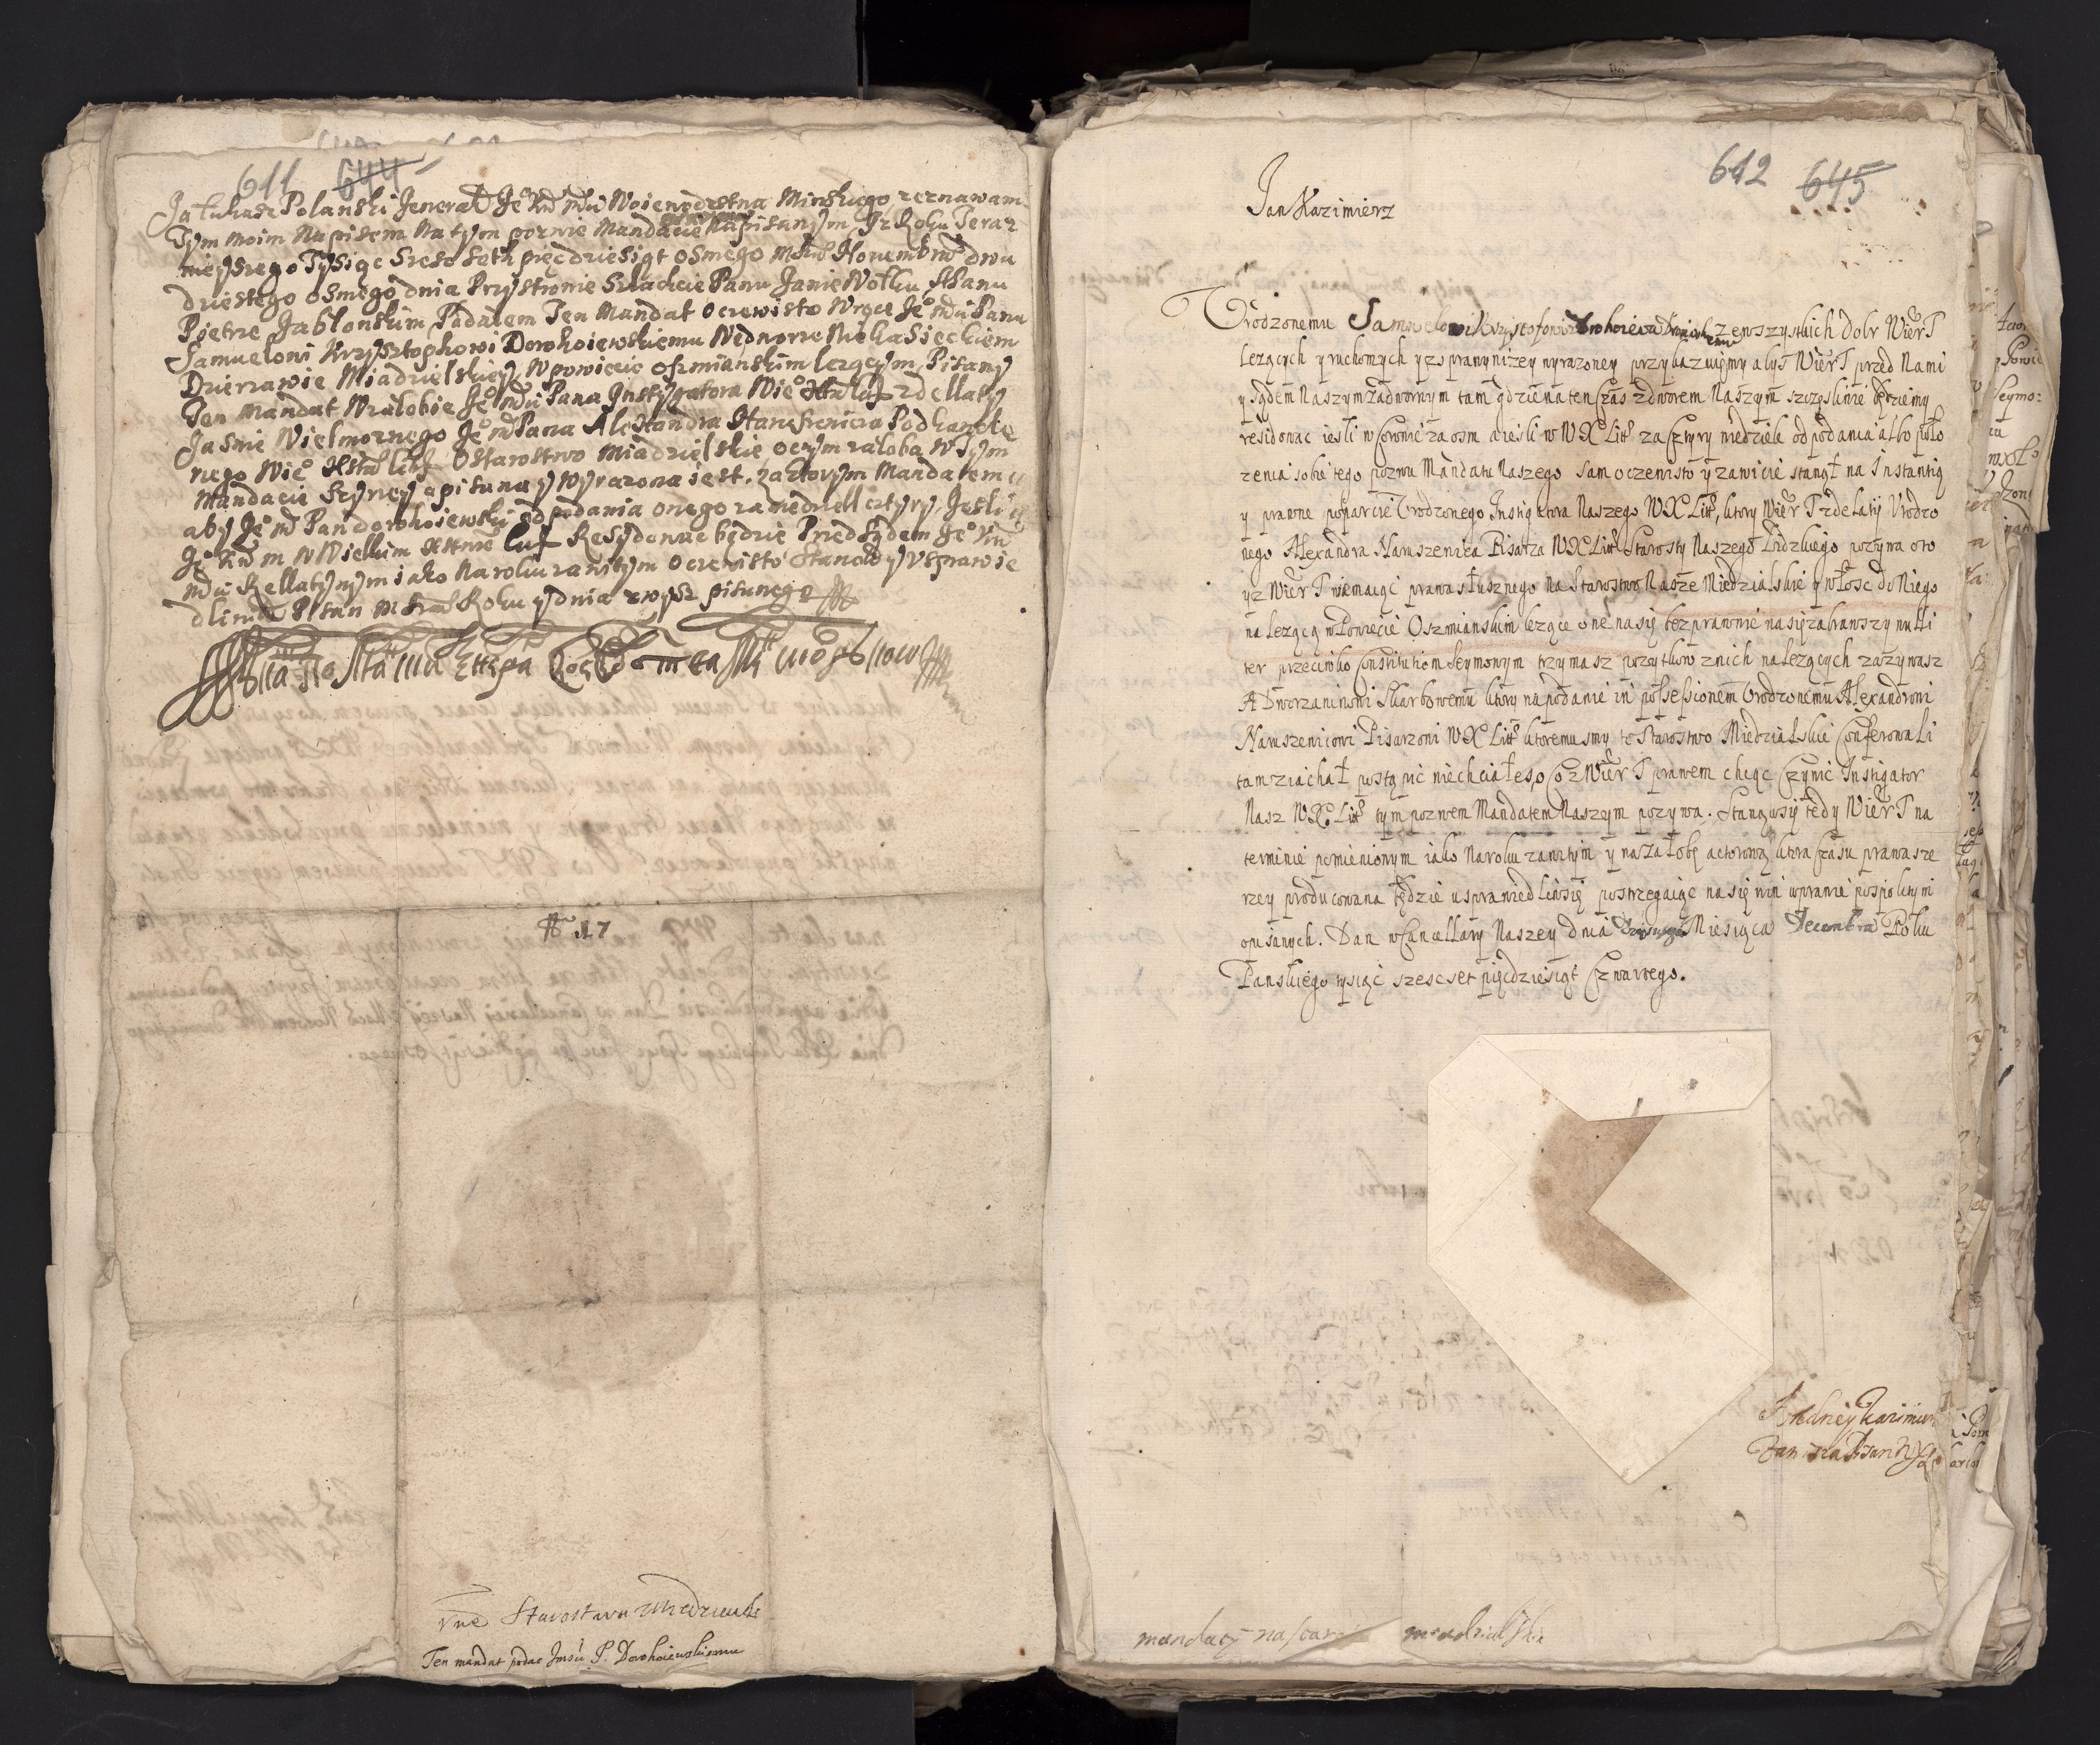 611 644
Ja Łukasz Polanski Jenerał Je° Kr̃ Mci Woiewodztwa Minskiego zeznawam
Tym moim Napisem Na tym pozwie Mandacie Napisanym Iz Roku Teraz
nieyszego Tysiąc Szescseth pięcdziesiąt osmego Mca Novembra dwu
dziestego osmego dnia Przystronie Szlachcie Panu Janie Wołku, A Panu
Pietrze Jablonskim Podałem Ten Mandat Oczewisto Wręce Je° Mci Panu
Samueloni Krzysztophowi Dorohoiewskiemu Wednorze Niekasieckiem
Dzierzawie Miadzielskiey, Wpowiecie Oszmianskim lezącym, Pisany
Ten Mandat Wzalobie Je° Mci Pana Instygatora Wie° zdellaty
Jasnie Wielmoznego Je° Mci Pana Alexandra Naruszewicza Podkancle
rzego Wie° O Starostwo Miadzielskie oczym załoba W Tym
Mandacie Szyrzey opisana y Wyrazona iest. Zaktorym Mandatem
aby Je° Mc Pan dorohoiewski od podania onego zaniedziell cztyry, Jesli
Je° Kr̃ m W Wielkim Xstwie Lit Resydowac będzie Przed Sądem Je° Kr̃
Mci Rellacyinym iako Naroku zawitym Oczewisto Stanoł y Vsprawie
dliwił Pisan Roku y dnia zwysz pisanego
17
Vne Starostwa Miedzialsk
Ten mandat podac Jmsci P. Dorohoiewskiemu
612 645
Jan Kazimierz
Vrodzonemu Samuelowi Krzysztofowi zewszystkich dobr WierT
Lezących y ruchomych y zo sprawy nizey wyrazoney przykazuiemy abys WierT przed Nami
y Sądem Naszym Zadwornym tam gdzie na ten Czas zdworem Naszym szczęslinie będziemy
residowac iesli w Coronie za osm a iesli w W X Lit° za Cztyry niedziele od podania albo poło
zenia sobie tego pozwu Mandatu Naszego Sam oczewisto y zawicie stanął na Instantią
y prawne poparcie Vrodzonego Instigatora Naszego WX Lit°, ktory WierT zdelatij Vrodzo
nego Alexandra Naruszewica Pisarza WX Lit° Starosty Naszego Lidzkiego pozywa oto
yz WierT niemaiąc prawa słusznego na Starostwo Nasze Miedzialskie y włosc do Niego
nalezącą w Powiecie Oszmianskim lezące one nasię bezprawnie nasię zabrawszy nulli
ter przeciwko Constitutiom Seymowym trzymasz pozytkow znich nalezących zazywasz
A Dworzaninowi Skarbowemu ktory na podanie in possessionem Vrodzonemu Alexandrowi
Naruszewicowi Pisarzowi WX Lit° ktoremusmy to Starostwo Miedzialskie Conferowali
tam ziachał postąpic niechciałes, o Co z WierT prawem chcąc Czynic Instigator
Nasz WX Lit° tym pozwem Mandatem Naszym pozywa. Stanąwszy tedy WierT na
terminie pomienionym iako Naroku zawitym y na załobę actorową ktora Czasu prawa sze
rzey producowana będzie usprawiedliwsię postrzegaiąc na się win w prawie pospolitym
opisanych. Dan w Cancellary Naszey dnia Miesiąca Decembra Roku
Panskiego tysiąc szescset pięcdziesiąt Czwartego.
Andrzey Kazimierz